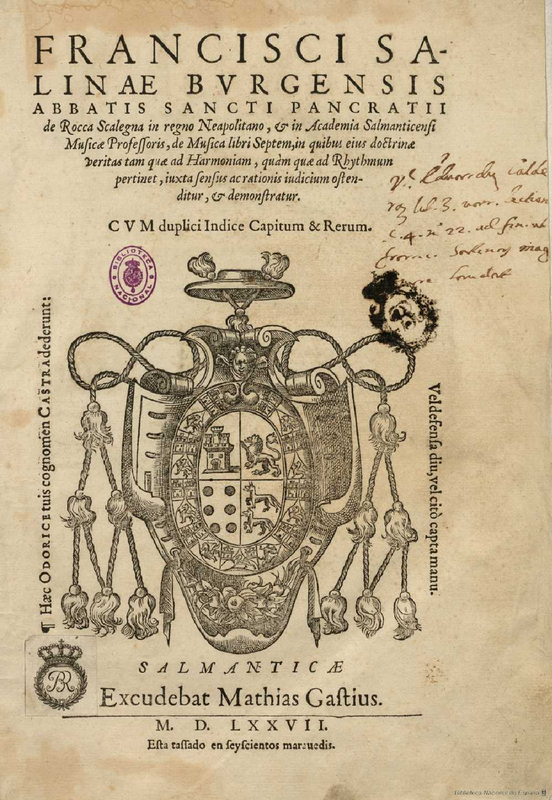 FRANCISCI SA-
LINAE BVRGENSIS
ABBATIS SANCTI PANCRATII
de Rocca Scalegna in regno Neapolitano, & in Academia Salmanticensi
Musicæ Professoris, de Musica libri Septem, in quibus eius doctrinæ
veritas tam quæ ad Harmoniam, quàm quæ ad Rhythmum
pertinet, iuxta sensus ac rationis iudicium osten-
ditur, & demonstratur.
CVM duplici Indice Capitum & Rerum.
lib. 3. varr.
c. 4. nº 22. ad fin.
BIBLIOTECA
NACIONAL
¶ Hæc ODORICE tuis cognomen CASTRA dederunt:
Vel defensa diu, vel citò capta manu.
SALMANTICÆ
BR
Excudebat Mathias Gastius.
M. D. LXXVII.
Esta tassado en seyscientos marauedis.
Biblioteca Nacional de España